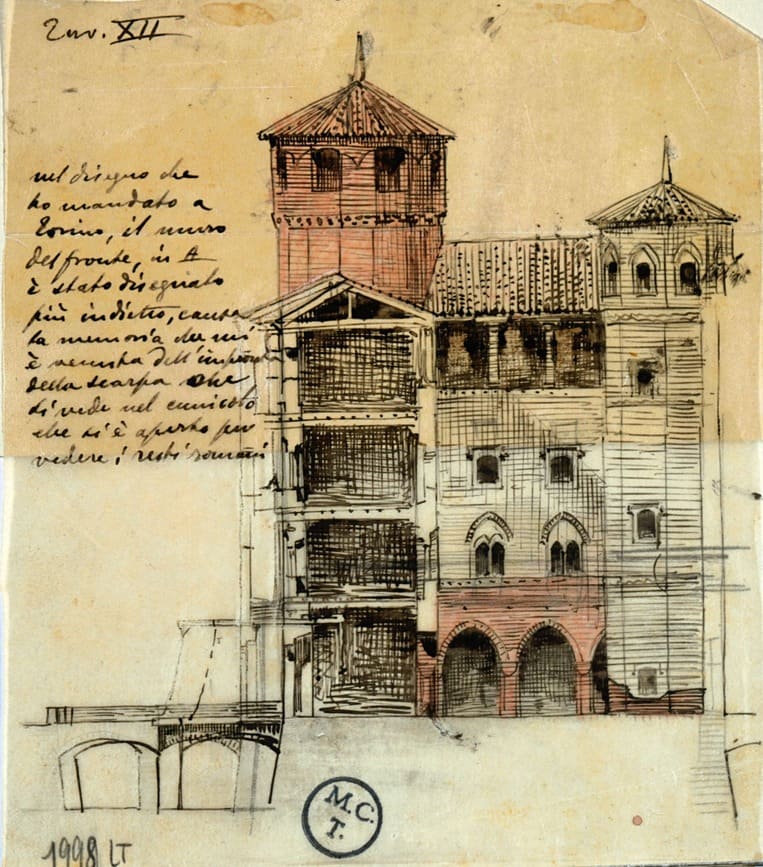 Tav. XII
nel disegno che
ho mandato a
Torino, il muro
del fronte, in A
è stato disegnato
più indietro, causa
la memoria che mi
è venuta dell'impronta
della scarpa che
si vede nel cunicolo
che si è aperto per
vedere i resti romani
A
M.C.
T.
1998 LT